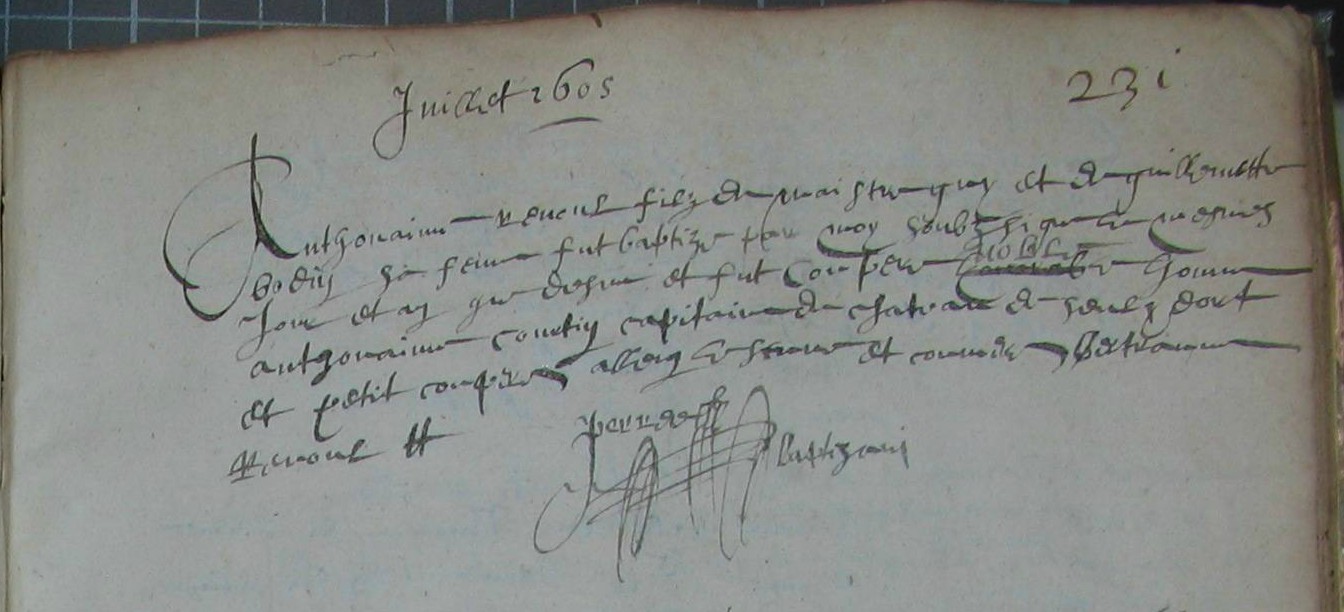 Juillet 1605
231
Anthonaine Renoul filz de maistre guy et de guillemette
bodin sa feme fut baptize par moy soubz signe mesmes
Jour et an que dessus et fut Comper noble homme
anthonaine courtin capitaine du chateau de
et petit comperes et Bertranne
Renoul
baptizavi